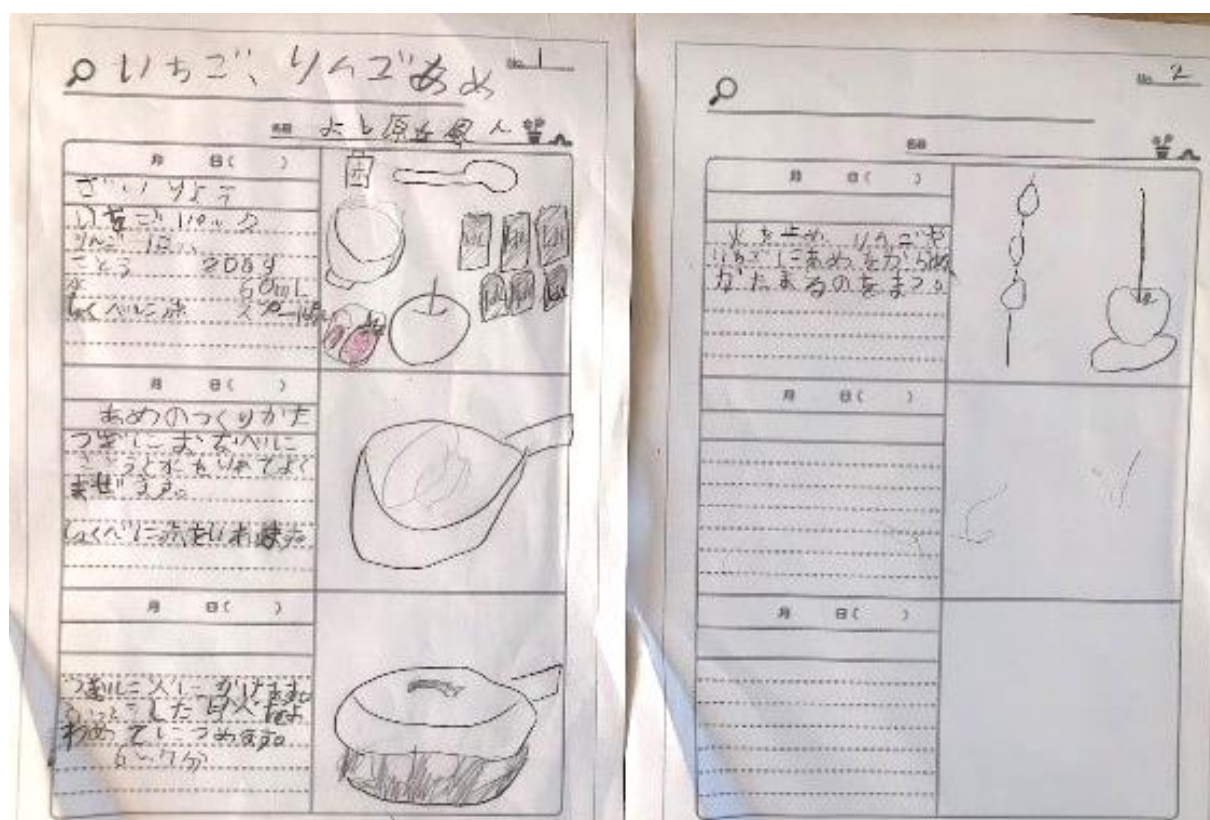 いちご、リんごあめ
No. 1
名前 よし原
月 日( )
ざいりょう
いちご 1パック
りんご 1コ
さとう 200g
水 60mL
しょくべに赤 スプーン
月 日( )
あめのつくりかた
つぎにおなべに
さとうと水をいれてよく
まぜます。
しょくべに赤をいれます。
月 日( )
つぎに火にかけます。
ふっとうした 火を
よわめてにつめます。
6〜7分
No. 2
名前
月 日( )
火を止め リんごや
いちごにあめをからめ
かたまるのをまつ。
月 日( )
月 日( )